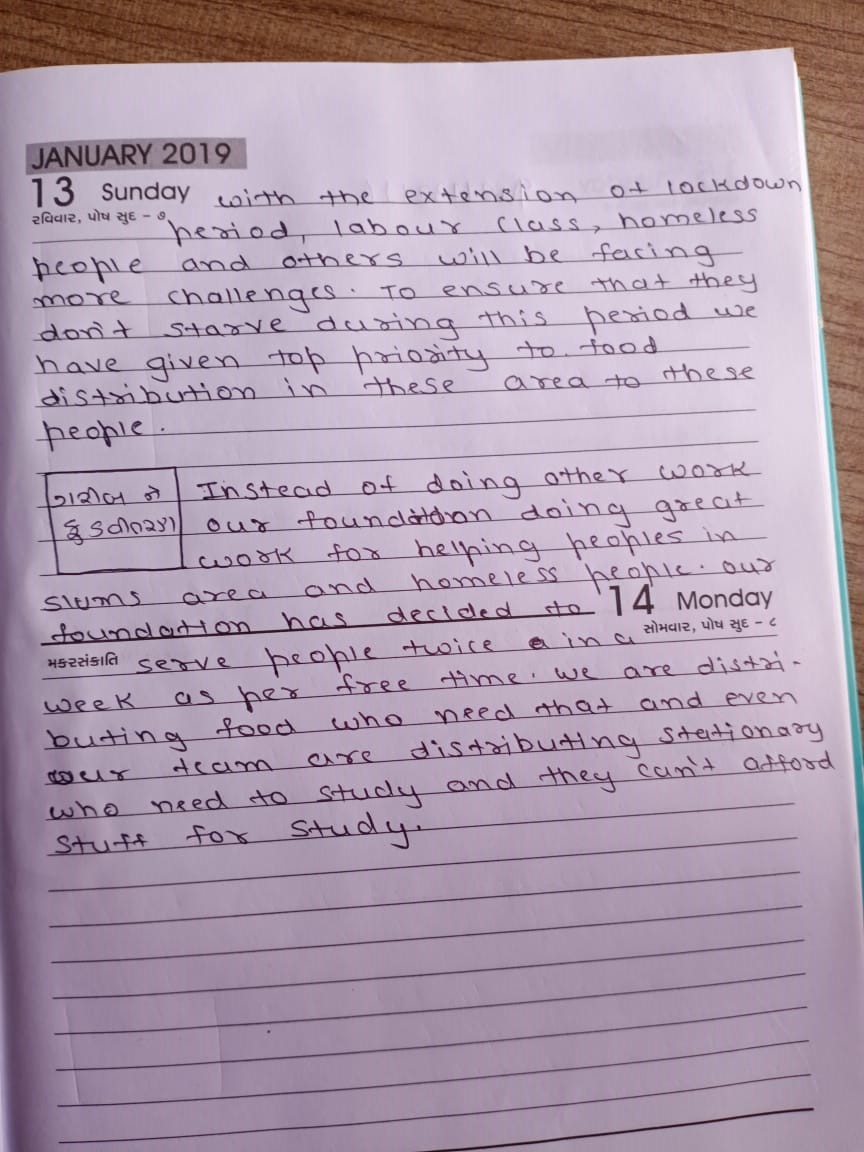 JANUARY 2019
13 Sunday with the extension of lockdown
રવિવાર, પોષ સુદ - ૭ period, labour class, homeless
people and others will be facing
more challenges. To ensure that they
don't starve during this period we
have given top priority to food
distribution in these area to these
people.
Instead of doing other work
our foundation doing great
work for helping peoples in
slums area and homeless people. our
foundation has decided to 14 Monday
સોમવાર, પોષ સુદ - ૮
મકરસંક્રાતિ serve people twice in a
week as per free time. we are distri-
buting food who need that and even
our team are distributing stationary
who need to study and they can't afford
stuff for study.